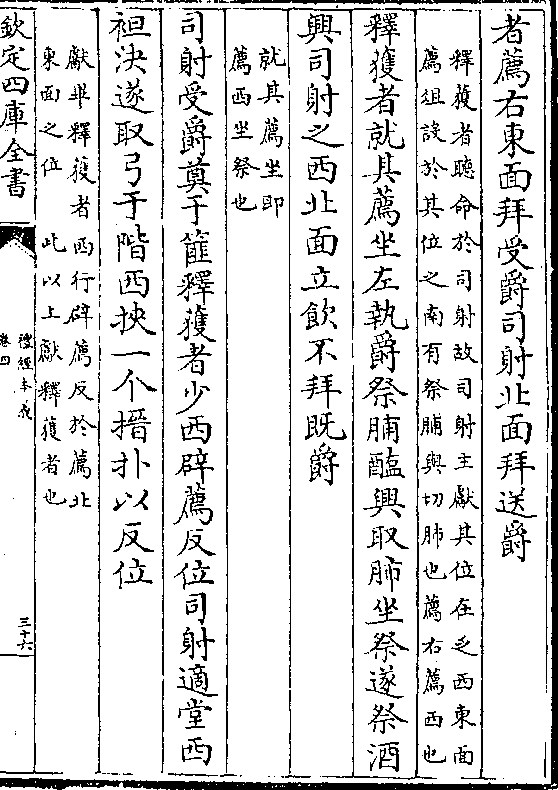 者薦右東面拜受爵司射北面拜送爵
釋獲者聽命於司射故司射主獻其位在乏西東面
薦俎設於其位之南有祭脯與切肺也薦右薦西也
釋獲者就其薦坐左執爵祭脯醢興取肺坐祭遂祭酒
興司射之西北面立飲不拜既爵
就其薦坐即
薦西坐祭也
司射受爵奠于篚釋獲者少西辟薦反位司射適堂西
袒決遂取弓于階西挾一个搢扑以反位
獻畢釋獲者西行辟薦反於薦北
東面之位 此以上獻釋獲者也
欽定四庫全書
禮經本義
卷四
三十六